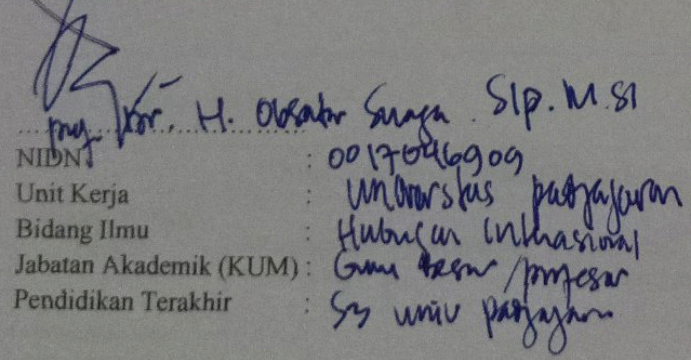 Prof. Dr. H. Obsatar Sinaga. SIp. M.SI
NIDN : 0017046909
Unit Kerja : Universitas padjajaran
Bidang Ilmu : Hubungan internasional
Jabatan Akademik (KUM) : Guru besar / profesor
Pendidikan Terakhir : S3 univ padjajaran